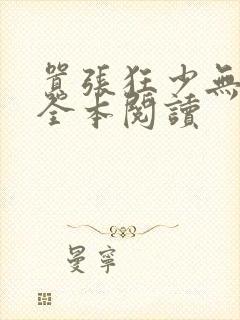 囂張狂少無
全本閱讀
曼寧